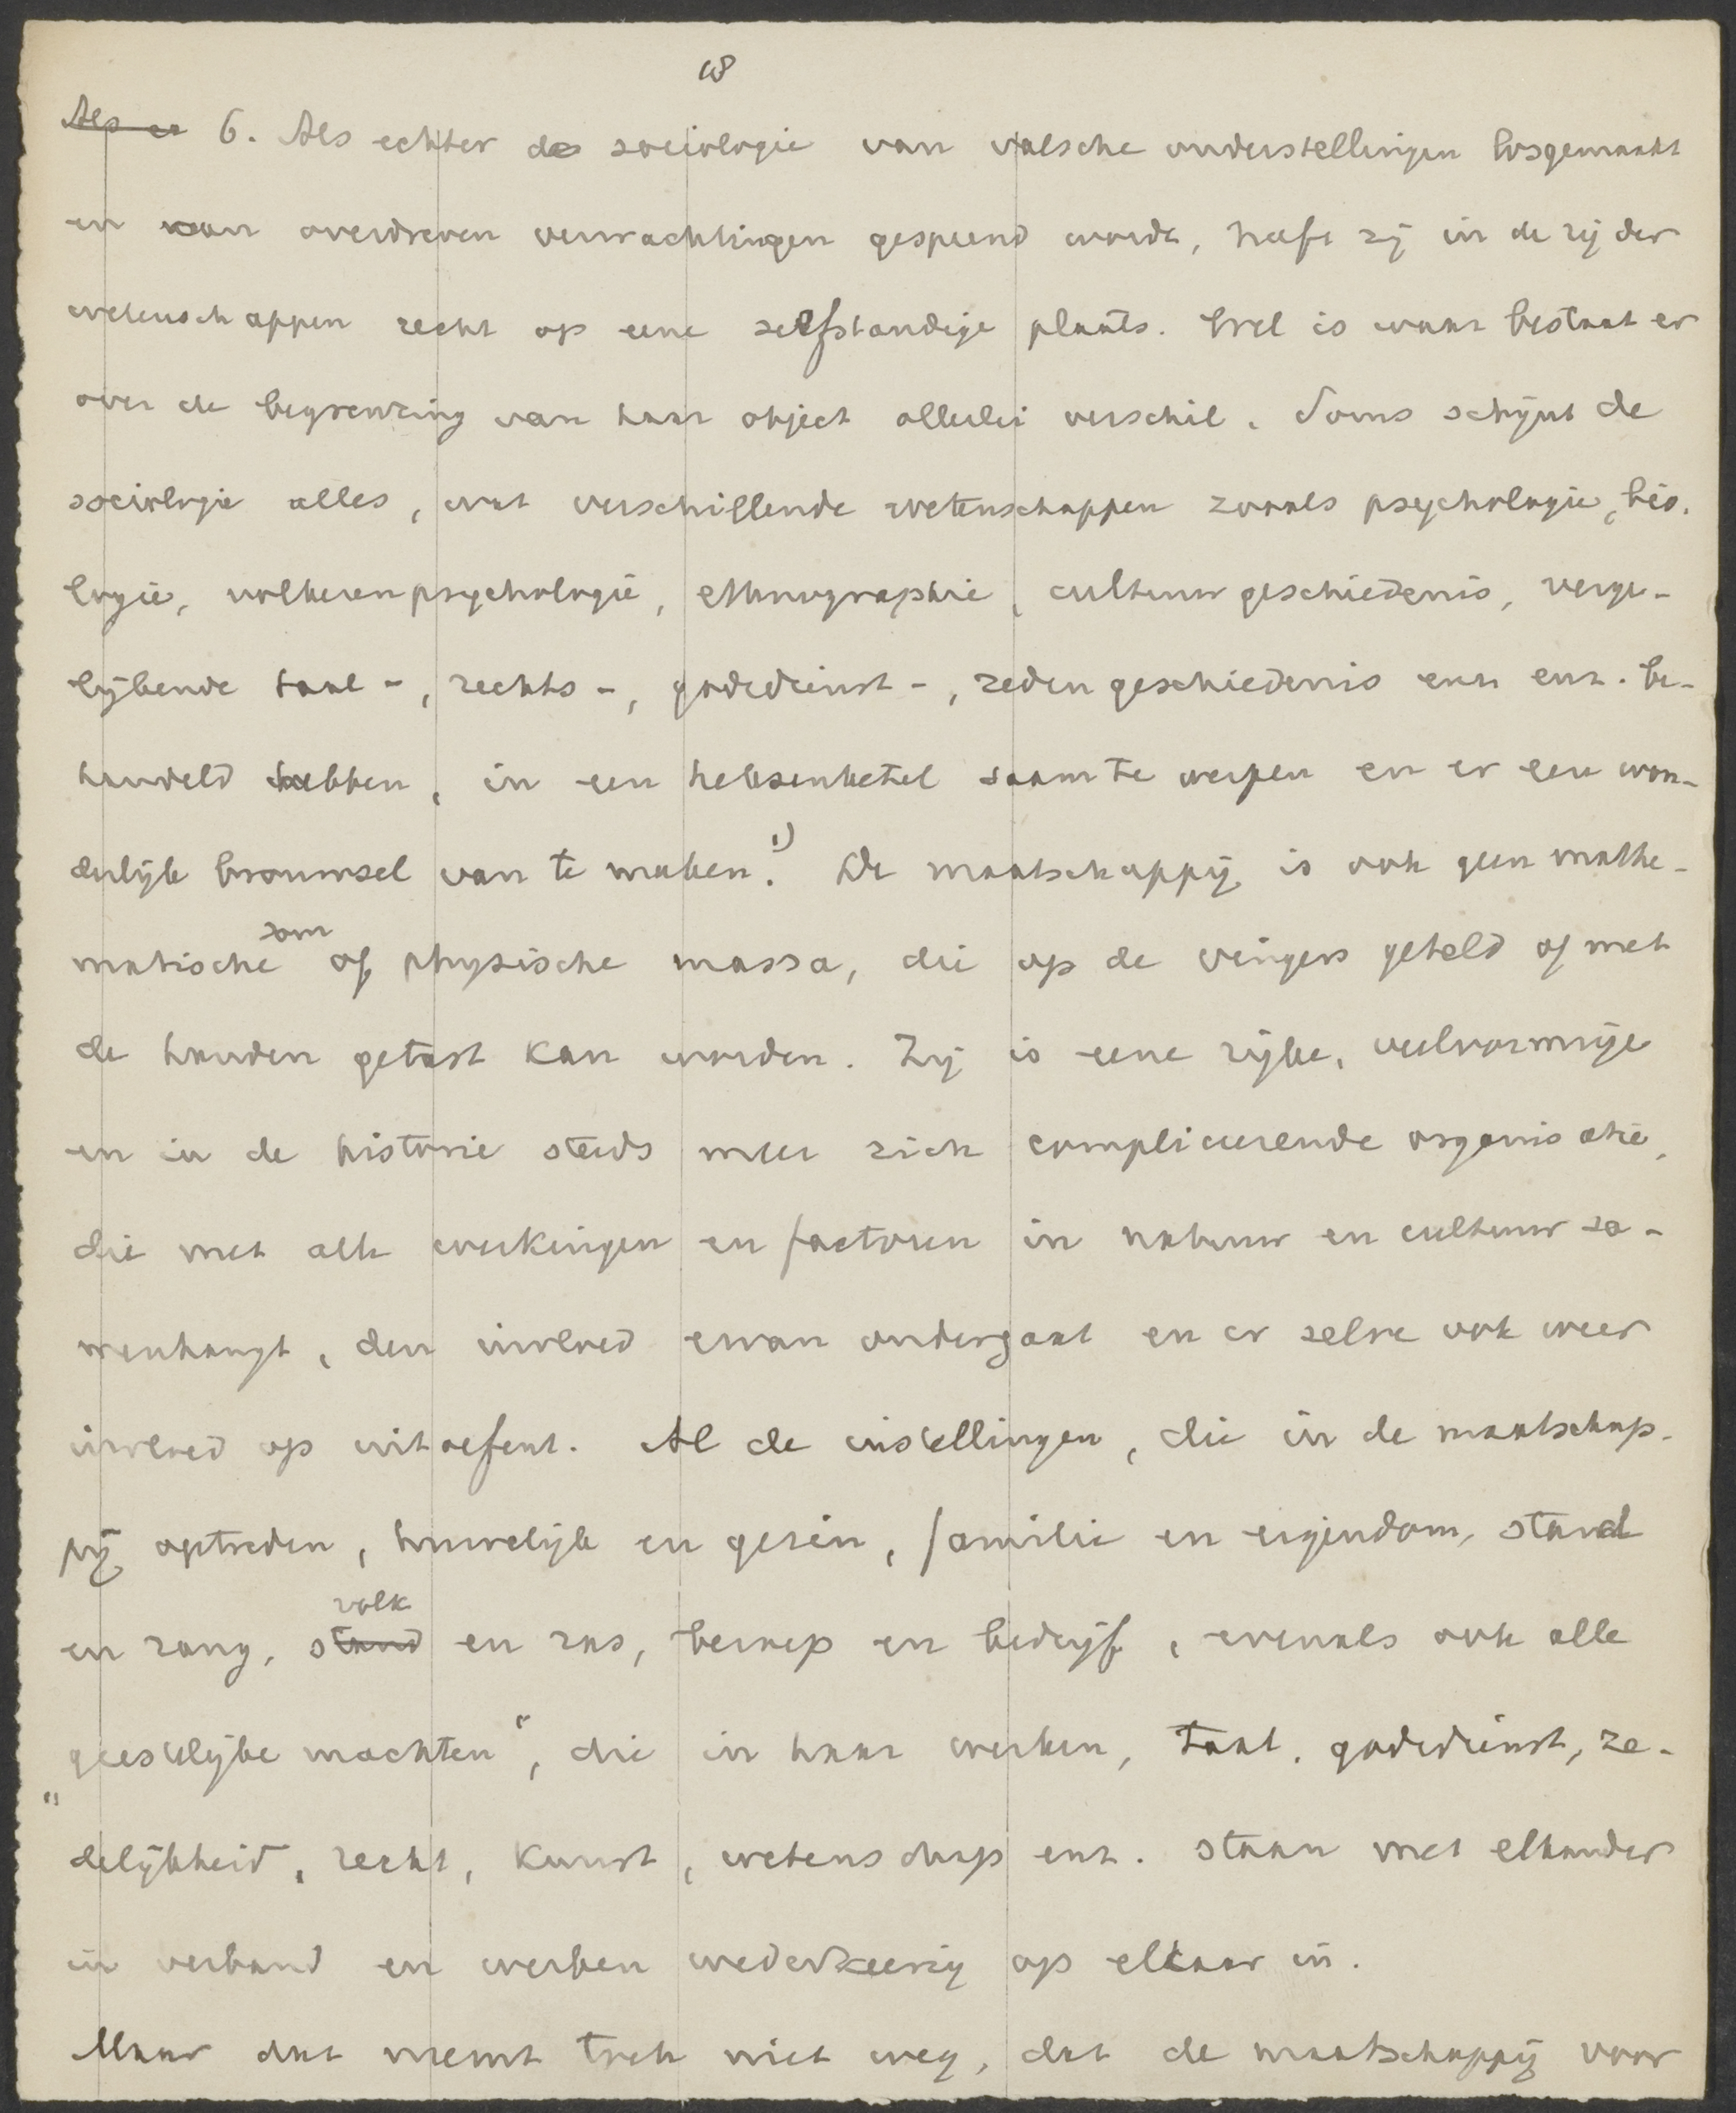 18
Als er 6. Als echter de sociologie van valsche onderstellingen losgemaakt
en van overdreven verwachtingen gespeend wordt, heeft zij in de rij der
wetenschappen recht op eene zelfstandige plaats. Wel is waar bestaat er
over de begrenzing van haar object allerlei verschil. Soms schijnt de
sociologie alles, wat verschillende wetenschappen zooals psychologie, bio-
logie, volkerenpsychologie, ethnographie, cultuurgeschiedenis, verge-
lijkende taal-, rechts-, godsdienst-, zedengeschiedenis enz enz. be-
handeld hebben, in een heksenketel saam te werpen en er een won-
derlijk brouwsel van te maken.1) De maatschappij is ook geen mathe-
matische som of physische massa, die op de vingers geteld of met
de handen getast kan worden. Zij is eene rijke, veelvormige
en in de historie steeds meer zich compliceerende organisatie,
die met alle werkingen en factoren in natuur en cultuur sa-
menhangt, den invloed ervan ondergaat en er zelve ook weer
invloed op uitoefent. Al de instellingen, die in de maatschap-
pij optreden, huwelijk en gezin, familie en eigendom, stand
en rang, stand volk en ras, beroep en bedrijf, evenals ook alle
"geestelijke machten", die in haar werken, taal, godsdienst, ze-
delijkheid, recht, kunst, wetenschap enz. staan met elkander
in verband en werken wederkeerig op elkaar in.
Maar dat neemt toch niet weg, dat de maatschappij voor